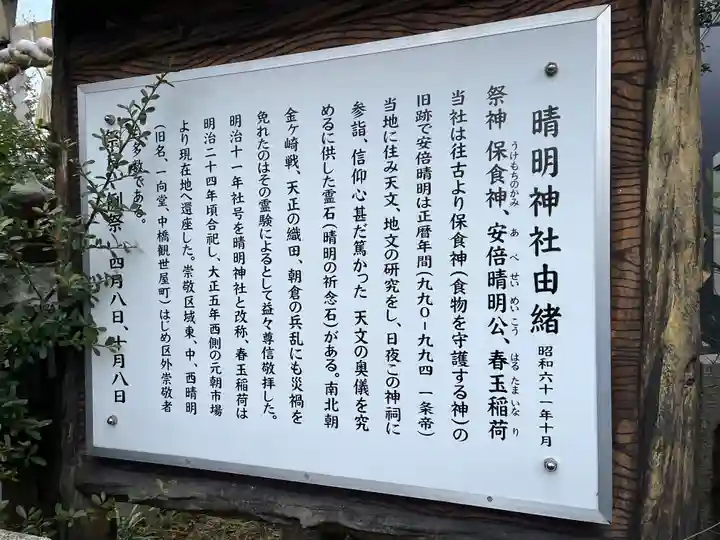 晴明神社由緒 昭和六十一年十月
祭神 保食神、安倍晴明公、春玉稲荷
うけもちのかみ あべせいめいこう はるたまいなり
当社は往古より保食神(食物を守護する神)の
旧跡で安倍晴明は正暦年間(九九0-九九四 一条帝)
当地に住み天文、地文の研究をし、日夜この神祠に
参詣、信仰心甚だ篤かった 天文の奥儀を究
めるに供した霊石(晴明の祈念石)がある。南北朝
金ヶ崎戦、天正の織田、朝倉の兵乱にも災禍を
免れたのはその霊験によるとして益々尊信敬拝した。
明治十一年社号を晴明神社と改称、春玉稲荷は
明治二十四年頃合祀し、大正五年西側の元朝市場
より現在地へ還座した。崇敬区域東、中、西晴明
(旧名、一向堂、中橋観世屋町)はじめ区外崇敬者
多数である。
例祭 四月八日、十月八日